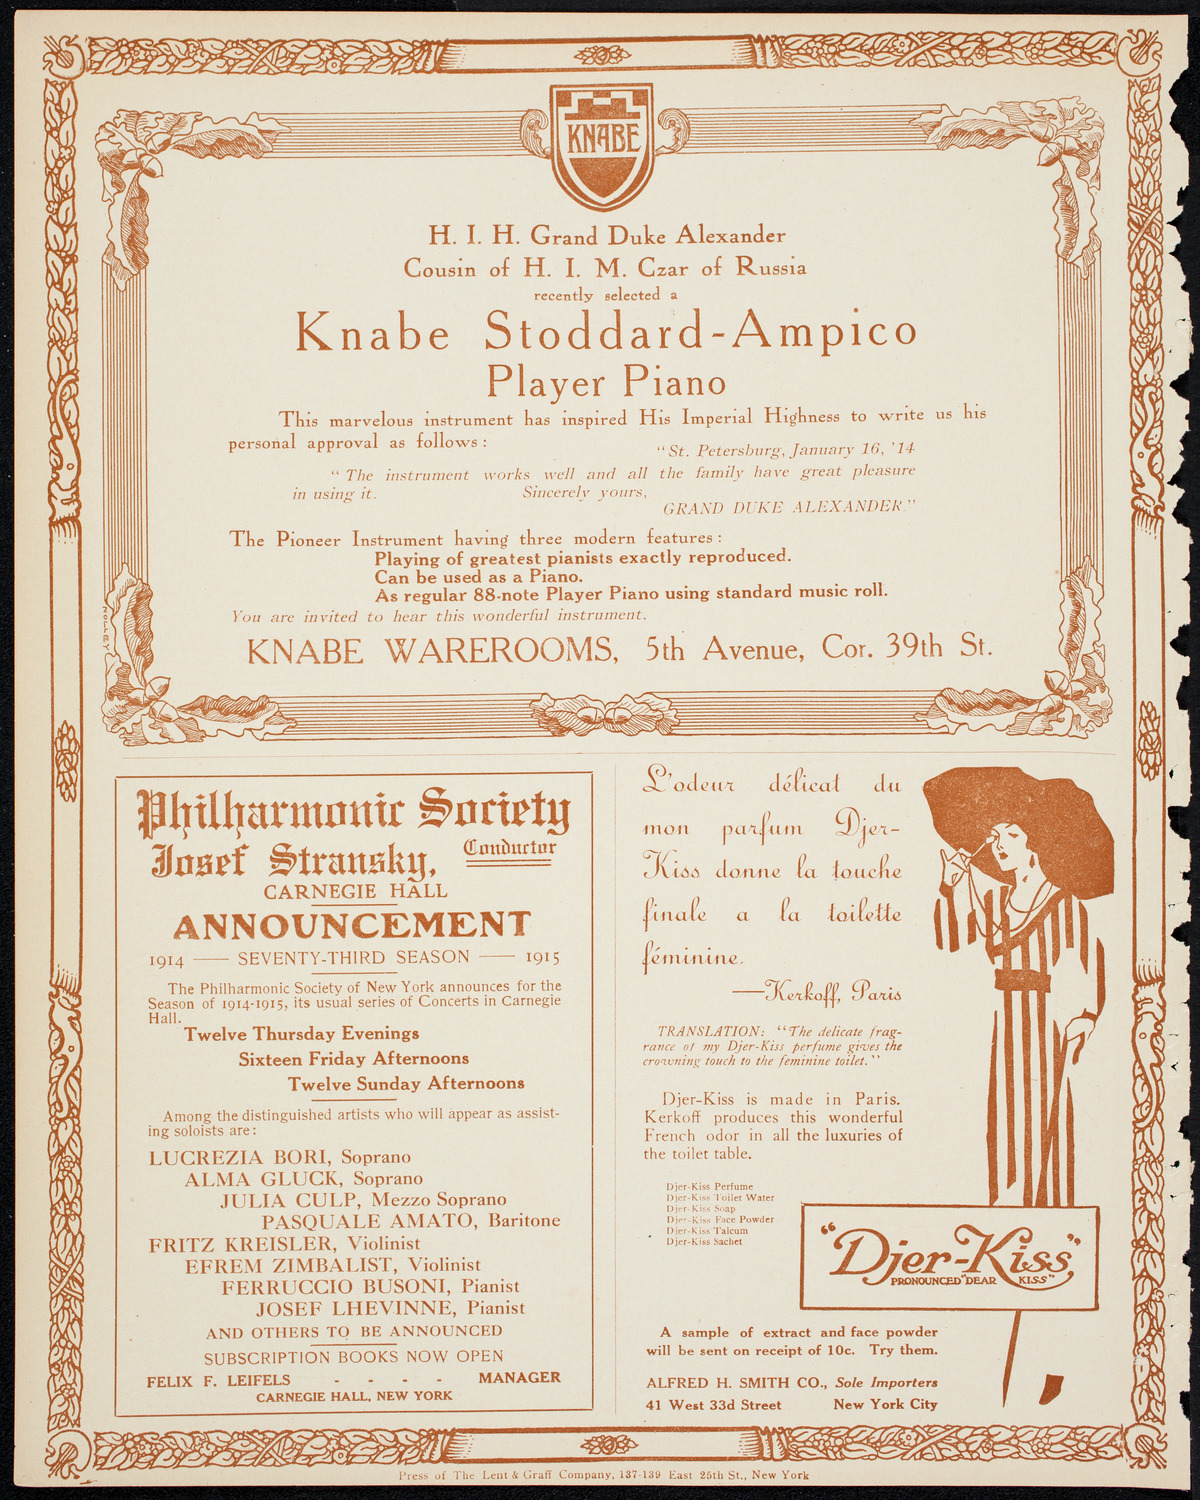 KNABE
H. I. H. Grand Duke Alexander
Cousin of H. I. M. Czar of Russia
recently selected a
Knabe Stoddard-Ampico
Player Piano
This marvelous instrument has inspired His Imperial Highness to write us his
personal approval as follows:
"St. Petersburg, January 16, '14
"The instrument works well and all the family have great pleasure
in using it. Sincerely yours,
GRAND DUKE ALEXANDER."
The Pioneer Instrument having three modern features:
Playing of greatest pianists exactly reproduced.
Can be used as a Piano.
As regular 88-note Player Piano using standard music roll.
You are invited to hear this wonderful instrument.
KNABE WAREROOMS, 5th Avenue, Cor. 39th St.
Philharmonic Society
Josef Stransky, Conductor
CARNEGIE HALL
ANNOUNCEMENT
1914 — SEVENTY-THIRD SEASON — 1915
The Philharmonic Society of New York announces for the
Season of 1914-1915, its usual series of Concerts in Carnegie
Hall.
Twelve Thursday Evenings
Sixteen Friday Afternoons
Twelve Sunday Afternoons
Among the distinguished artists who will appear as assist-
ing soloists are:
LUCREZIA BORI, Soprano
ALMA GLUCK, Soprano
JULIA CULP, Mezzo Soprano
PASQUALE AMATO, Baritone
FRITZ KREISLER, Violinist
EFREM ZIMBALIST, Violinist
FERRUCCIO BUSONI, Pianist
JOSEF LHEVINNE, Pianist
AND OTHERS TO BE ANNOUNCED
SUBSCRIPTION BOOKS NOW OPEN
FELIX F. LEIFELS - - - - MANAGER
CARNEGIE HALL, NEW YORK
L'odeur délicat du
mon parfum Djer-
Kiss donne la touche
finale a la toilette
féminine.
—Kerkoff, Paris
TRANSLATION: "The delicate frag-
rance of my Djer-Kiss perfume gives the
crowning touch to the feminine toilet."
Djer-Kiss is made in Paris.
Kerkoff produces this wonderful
French odor in all the luxuries of
the toilet table.
Djer-Kiss Perfume
Djer-Kiss Toilet Water
Djer-Kiss Soap
Djer-Kiss Face Powder
Djer-Kiss Talcum
Djer-Kiss Sachet
"Djer-Kiss"
PRONOUNCED "DEAR KISS"
A sample of extract and face powder
will be sent on receipt of 10c. Try them.
ALFRED H. SMITH CO., Sole Importers
41 West 33d Street New York City
Press of The Lent & Graff Company, 137-139 East 25th St., New York